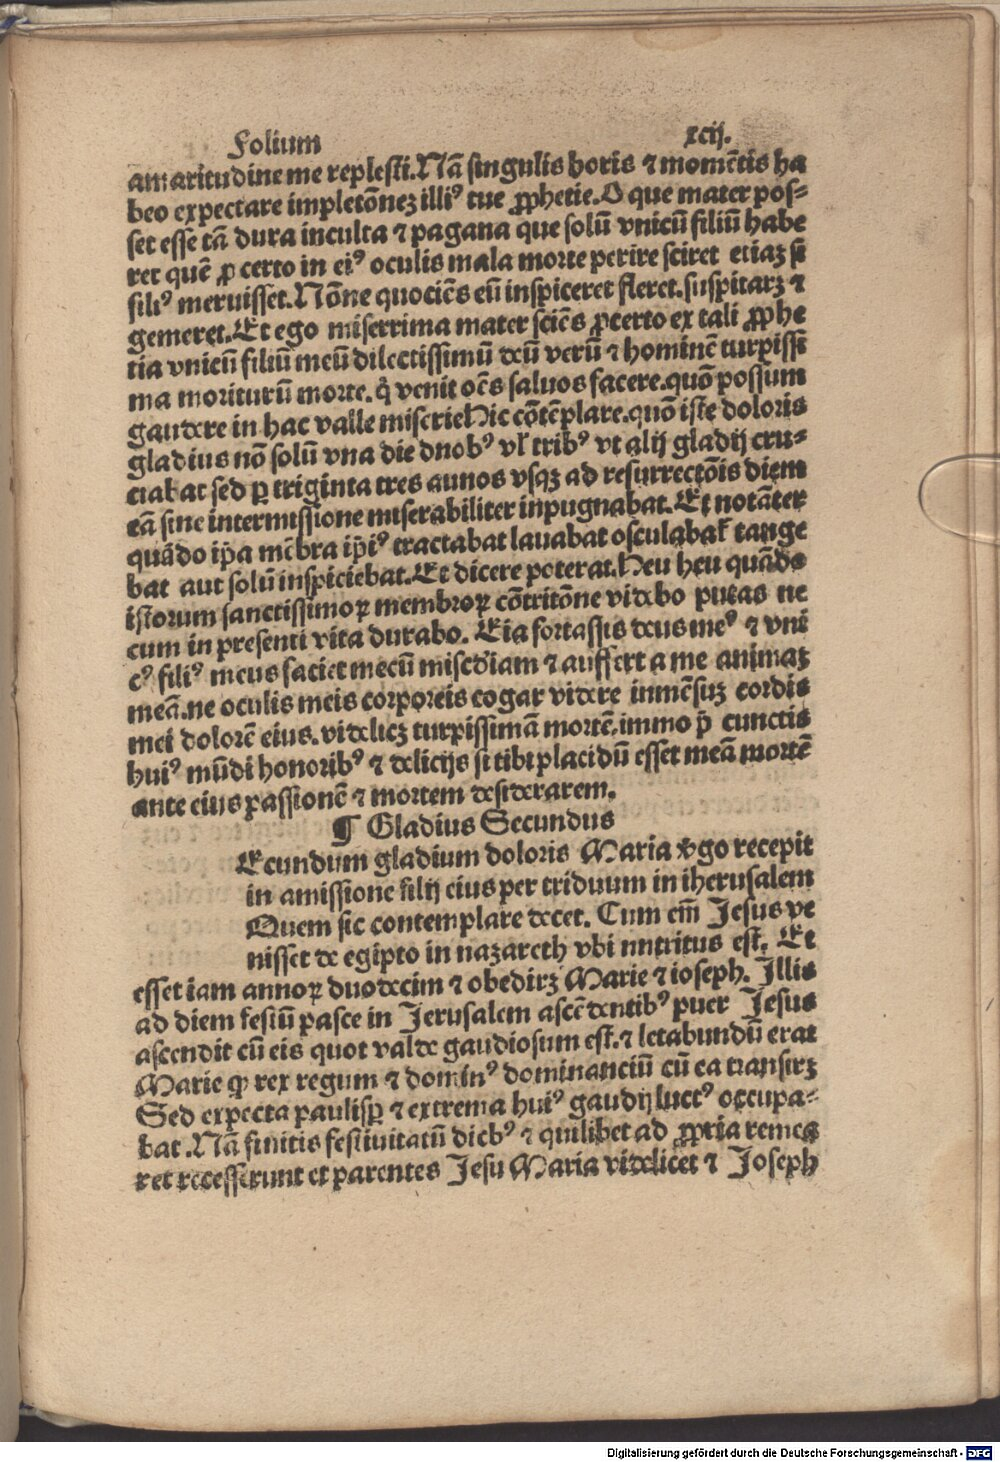 Folium xcij.
amaritudine me replesti. Nā singulis horis ⁊ momētis ha
beo expectare impletōnez illiꝰ tue ꝓphetie. O que mater pos⸗
set esse tā dura inculta ⁊ pagana que solū vnicū filiū habe
ret quē ꝓ certo in eiꝰ oculis mala morte perire sciret etiaz si
filiꝰ meruisset. Nōne quociēs eū inspiceret fleret. suspitarꝫ ⁊
gemeret. Et ego miserrima mater sciēs ꝓcerto ex tali ꝓphe
tia vnicū filiū meū dilectissimū deū verū ⁊ hominē turpissi
ma moriturū morte. q̇ venit oēs saluos facere. quō possum
gaudere in hac valle miserie Hic cōtēplare. quō iste doloris
gladius nō solū vna die dnobꝰ vl̓ tribꝰ vt alij gladij cru⸗
ciabat sed ꝑ triginta tres annos vsqꝫ ad resurrectōis diem
eā sine intermissione miserabiliter inpugnabat. Et notāter
quādo ip̄a mēbra ip̄iꝰ tractabat lauabat osculabat̉ tange
bat aut solū inspiciebat. Et dicere poterat. Heu heu quādo
istorum sanctissimoꝝ membroꝝ cōtritōne videbo putas ne
cum in presenti vita durabo. Eia fortassis deus meꝰ ⁊ vni
cꝰ filiꝰ meus faciet mecū miscd̓iam ⁊ auffert a me animaz
meā. ne oculis meis corporeis cogar videre inmēsuz cordis
mei dolorē eius. videlicꝫ turpissimā mortē. immo p̄ cunctis
huiꝰ mūdi honoribꝰ ⁊ delicijs si tibi placidū esset meā mortē
ante eius passionē ⁊ mortem desiderarem.
¶ Gladius Secundus
Ecundum gladium doloris Maria v̓go recepit
in amissione filij eius per triduum in iherusalem
Quem sic contemplare decet. Cum em̄ Jesus ve
nisset de egipto in nazareth vbi nntritus est. Et
esset iam annoꝝ duodecim ⁊ obedirꝫ Marie ⁊ ioseph. Illis
ad diem festū pasce in Jerusalem ascēdentibꝰ puer Jesus
ascendit cū eis quot valde gaudiosum est. ⁊ letabundū erat
Marie ꝙ rex regum ⁊ dominꝰ dominanciū cū ea transirꝫ
Sed expecta paulisꝑ ⁊ extrema huiꝰ gaudij luctꝰ occupa⸗
bat. Nā finitis festiuitatū diebꝰ ⁊ quilibet ad ꝓpria remea
ret recesserunt et parentes Jesu Maria videlicet ⁊ Joseph
Digitalisierung gefördert durch die Deutsche Forschungsgemeinschaft - DFG